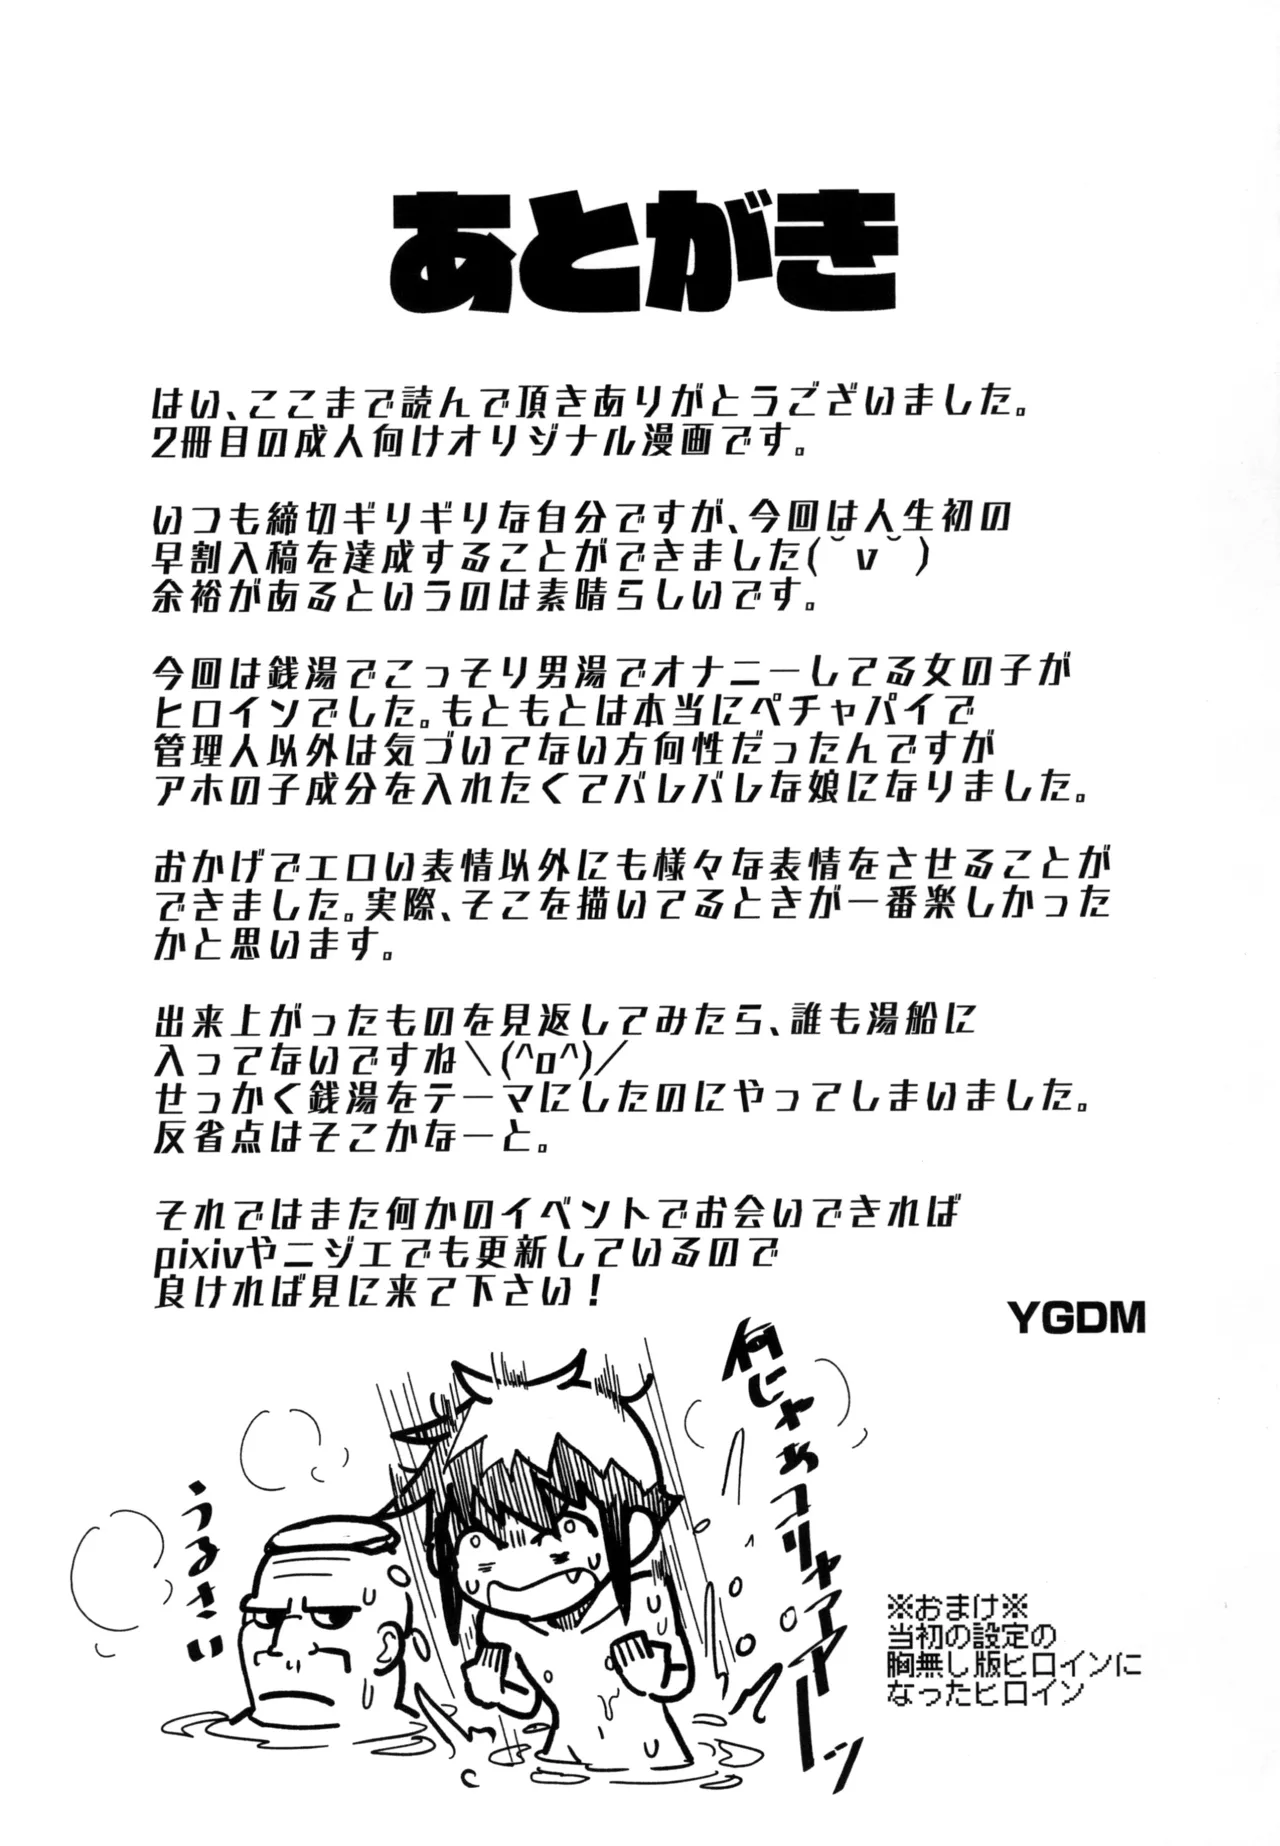 あとがき
はい、ここまで読んで頂きありがとうございました。
2冊目の成人向けオリジナル漫画です。
いつも締切ギリギリな自分ですが、今回は人生初の
早割入稿を達成することができました(˘v˘)
余裕があるというのは素晴らしいです。
今回は銭湯でこっそり男湯でオナニーしてる女の子が
ヒロインでした。もともとは本当にペチャパイで
管理人以外は気づいてない方向性だったんですが
アホの子成分を入れたくてバレバレな娘になりました。
おかげでエロい表情以外にも様々な表情をさせることが
できました。実際、そこを描いてるときが一番楽しかった
かと思います。
出来上がったものを見返してみたら、誰も湯船に
入ってないですね＼(^o^)／
せっかく銭湯をテーマにしたのにやってしまいました。
反省点はそこかなーと。
それではまた何かのイベントでお会いできれば
pixivやニジエでも更新しているので
良ければ見に来て下さい！
YGDM
何じゃあコリャアアアーッ
うるさい
※おまけ※
当初の設定の
胸無し版ヒロインに
なったヒロイン